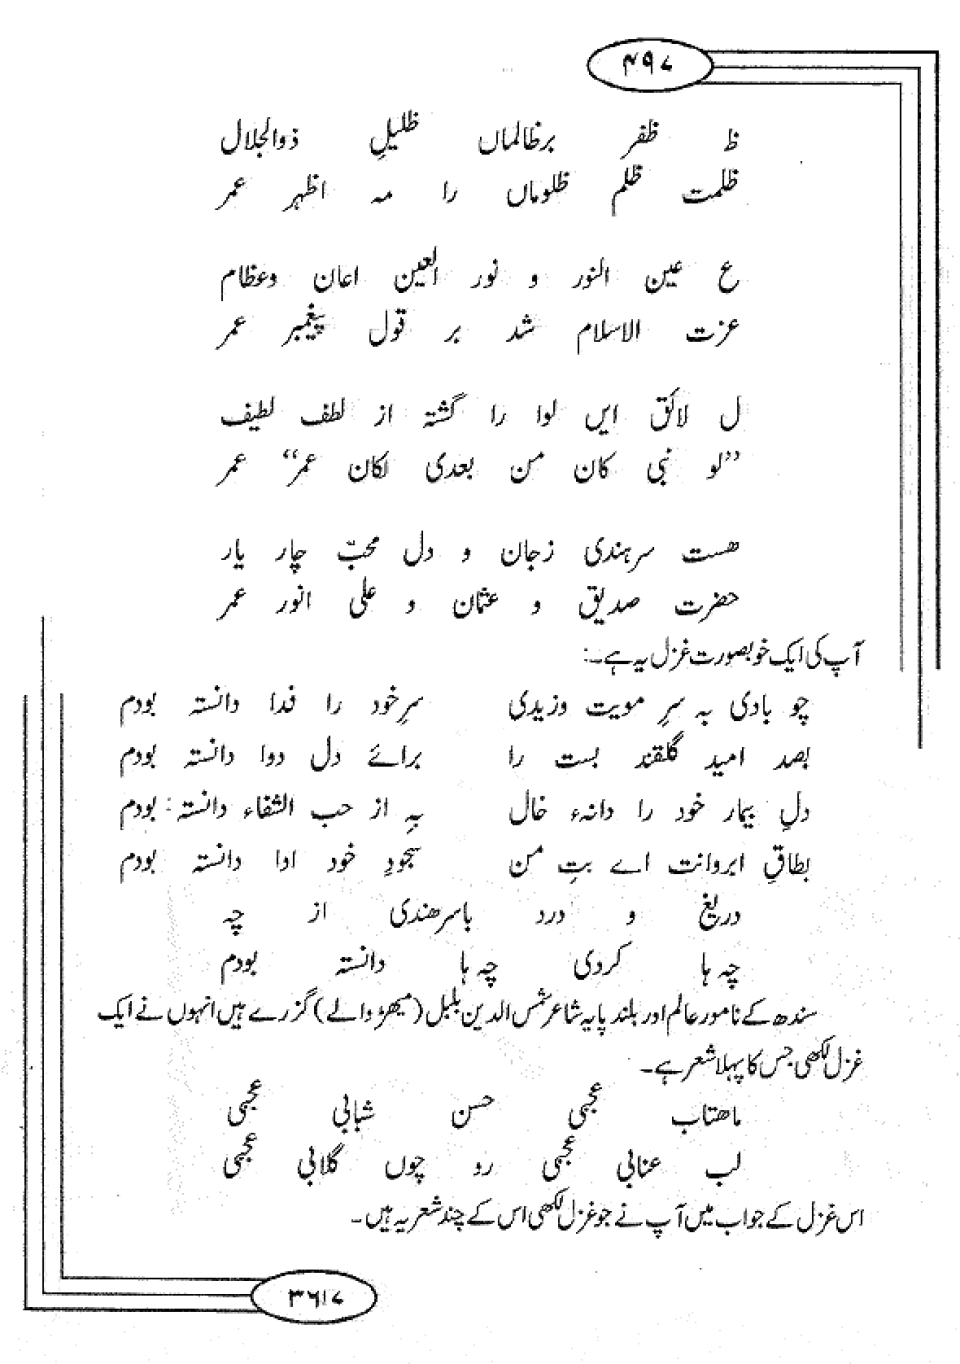 ۴۹۷
ظ ظفر برظالماں ظلیلِ ذوالجلال
ظلمت ظلم ظلوماں را مہ اظہر عمر
ع عین النور و نور العین اعان وعظام
عزت الاسلام شد بر قول پیغمبر عمر
ل لائق ایں لوا را گشتہ از لطف لطیف
”لو نبی کان من بعدی لکان عمر“ عمر
ھست سرہندی زجان و دل محبّ چار یار
حضرت صدیق و عثمان و علی انور عمر
آپ کی ایک خوبصورت غزل یہ ہے۔:
چو بادی بہ سرِ مویت وزیدی سرِخود را فدا دانستہ بودم
بصد امید گلقند بست را برائے دل دوا دانستہ بودم
دلِ بیمار خود را دانہء خال بِہ از حب الشفاء دانستہ بودم
بطاقِ ابروانت اے بتِ من سجودِ خود ادا دانستہ بودم
دریغ و درد باسرھندی از چہ
چہ ہا کردی چہ ہا دانستہ بودم
سندھ کے نامور عالم اور بلند پایہ شاعر شمس الدین بلبل (میھڑ والے) گزرے ہیں انہوں نے ایک
غزل لکھی جس کا پہلا شعر ہے۔
ماھتاب عجبی حسن شبابی عجبی
لب عنابی عجبی رو چوں گلابی عجبی
اس غزل کے جواب میں آپ نے جو غزل لکھی اس کے چند شعر یہ ہیں۔